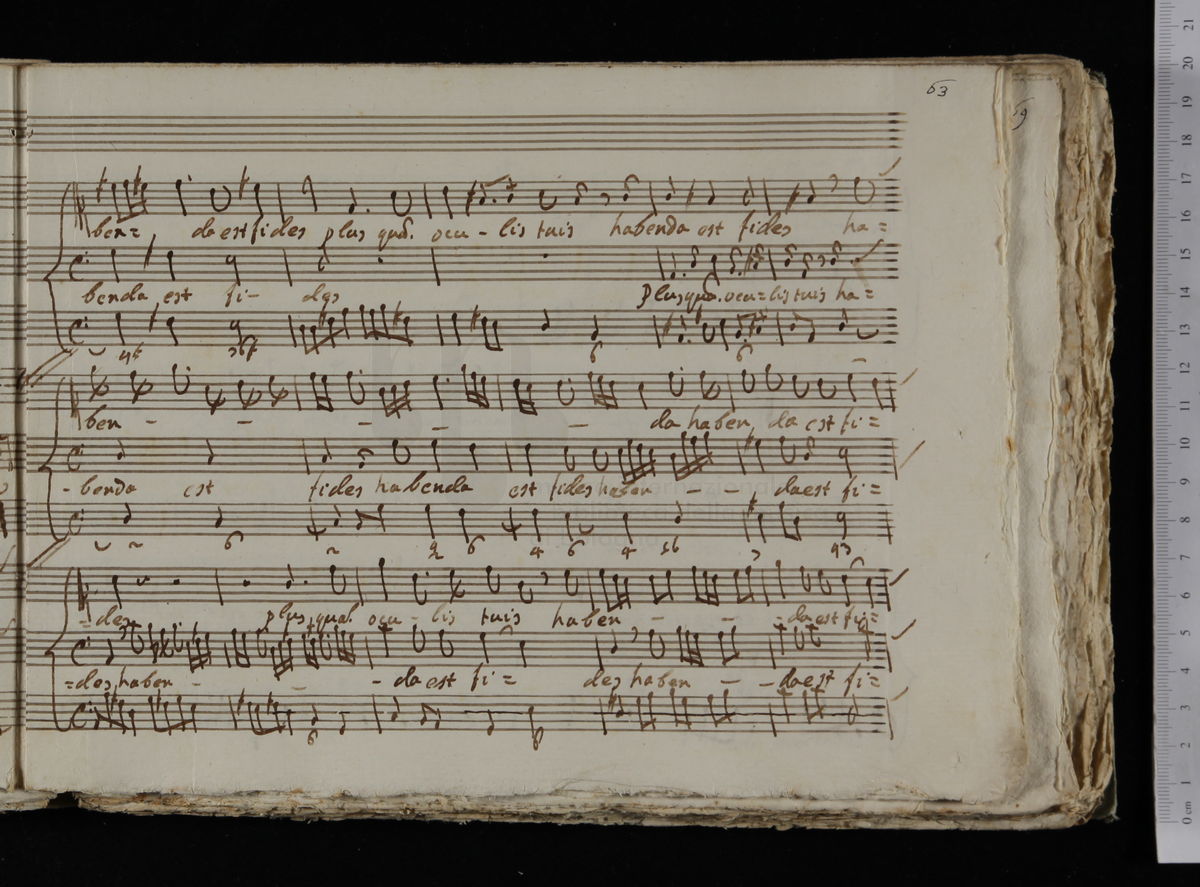 63
59
ben= da est fides plus quā. ocu - lis tuis habenda est fides ha=
benda est fi- des plus quā. ocu=lis tuis ha=
6 6
ben - - - - - da haben, da est fi=
- benda est fides habenda est fides haben - - , da est fi=
6 2 6 4 6 4 3
- des plus quā. ocu - lis tuis haben - - - da est fi=
=des haben - - - da est fi= des haben - - da est fi=
6
21
20
19
18
17
16
15
14
13
12
11
10
9
8
7
6
5
4
3
2
1
0 cm